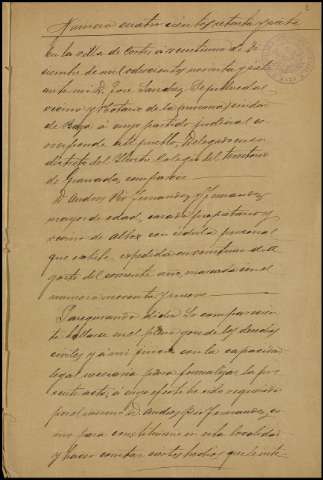 Número cuatrocientos setenta y siete
En la villa de Cortes á veintiuno de Di-
ciembre de mil ochocientos noventa y siete
ante mí D. José Sanchez Sepulveda
vecino y Notario de la ciudad
de Baza, á cuyo partido judicial co-
rresponde este pueblo, Delegado en su
distrito del Ilustre Colegio del territorio
de Granada, comparece
D. Andres Fernandez y Fernandez
mayor de edad, casado, propietario y
vecino de Albox con cédula personal
que exhibe, expedida en veintiuno de A-
gosto del corriente año, marcada con el
número noventa y nueve
Y asegurando dicho Sr. comparecien-
te hallarse en el pleno goce de los derechos
civiles y á mi juicio con la capacidad
legal necesaria para formalizar la pre-
sente acta, á cuyo efecto he sido requerido
por el mismo D. Andres Fernandez, co-
mo para constituirme en esta localidad
y hacer constar ciertos hechos que